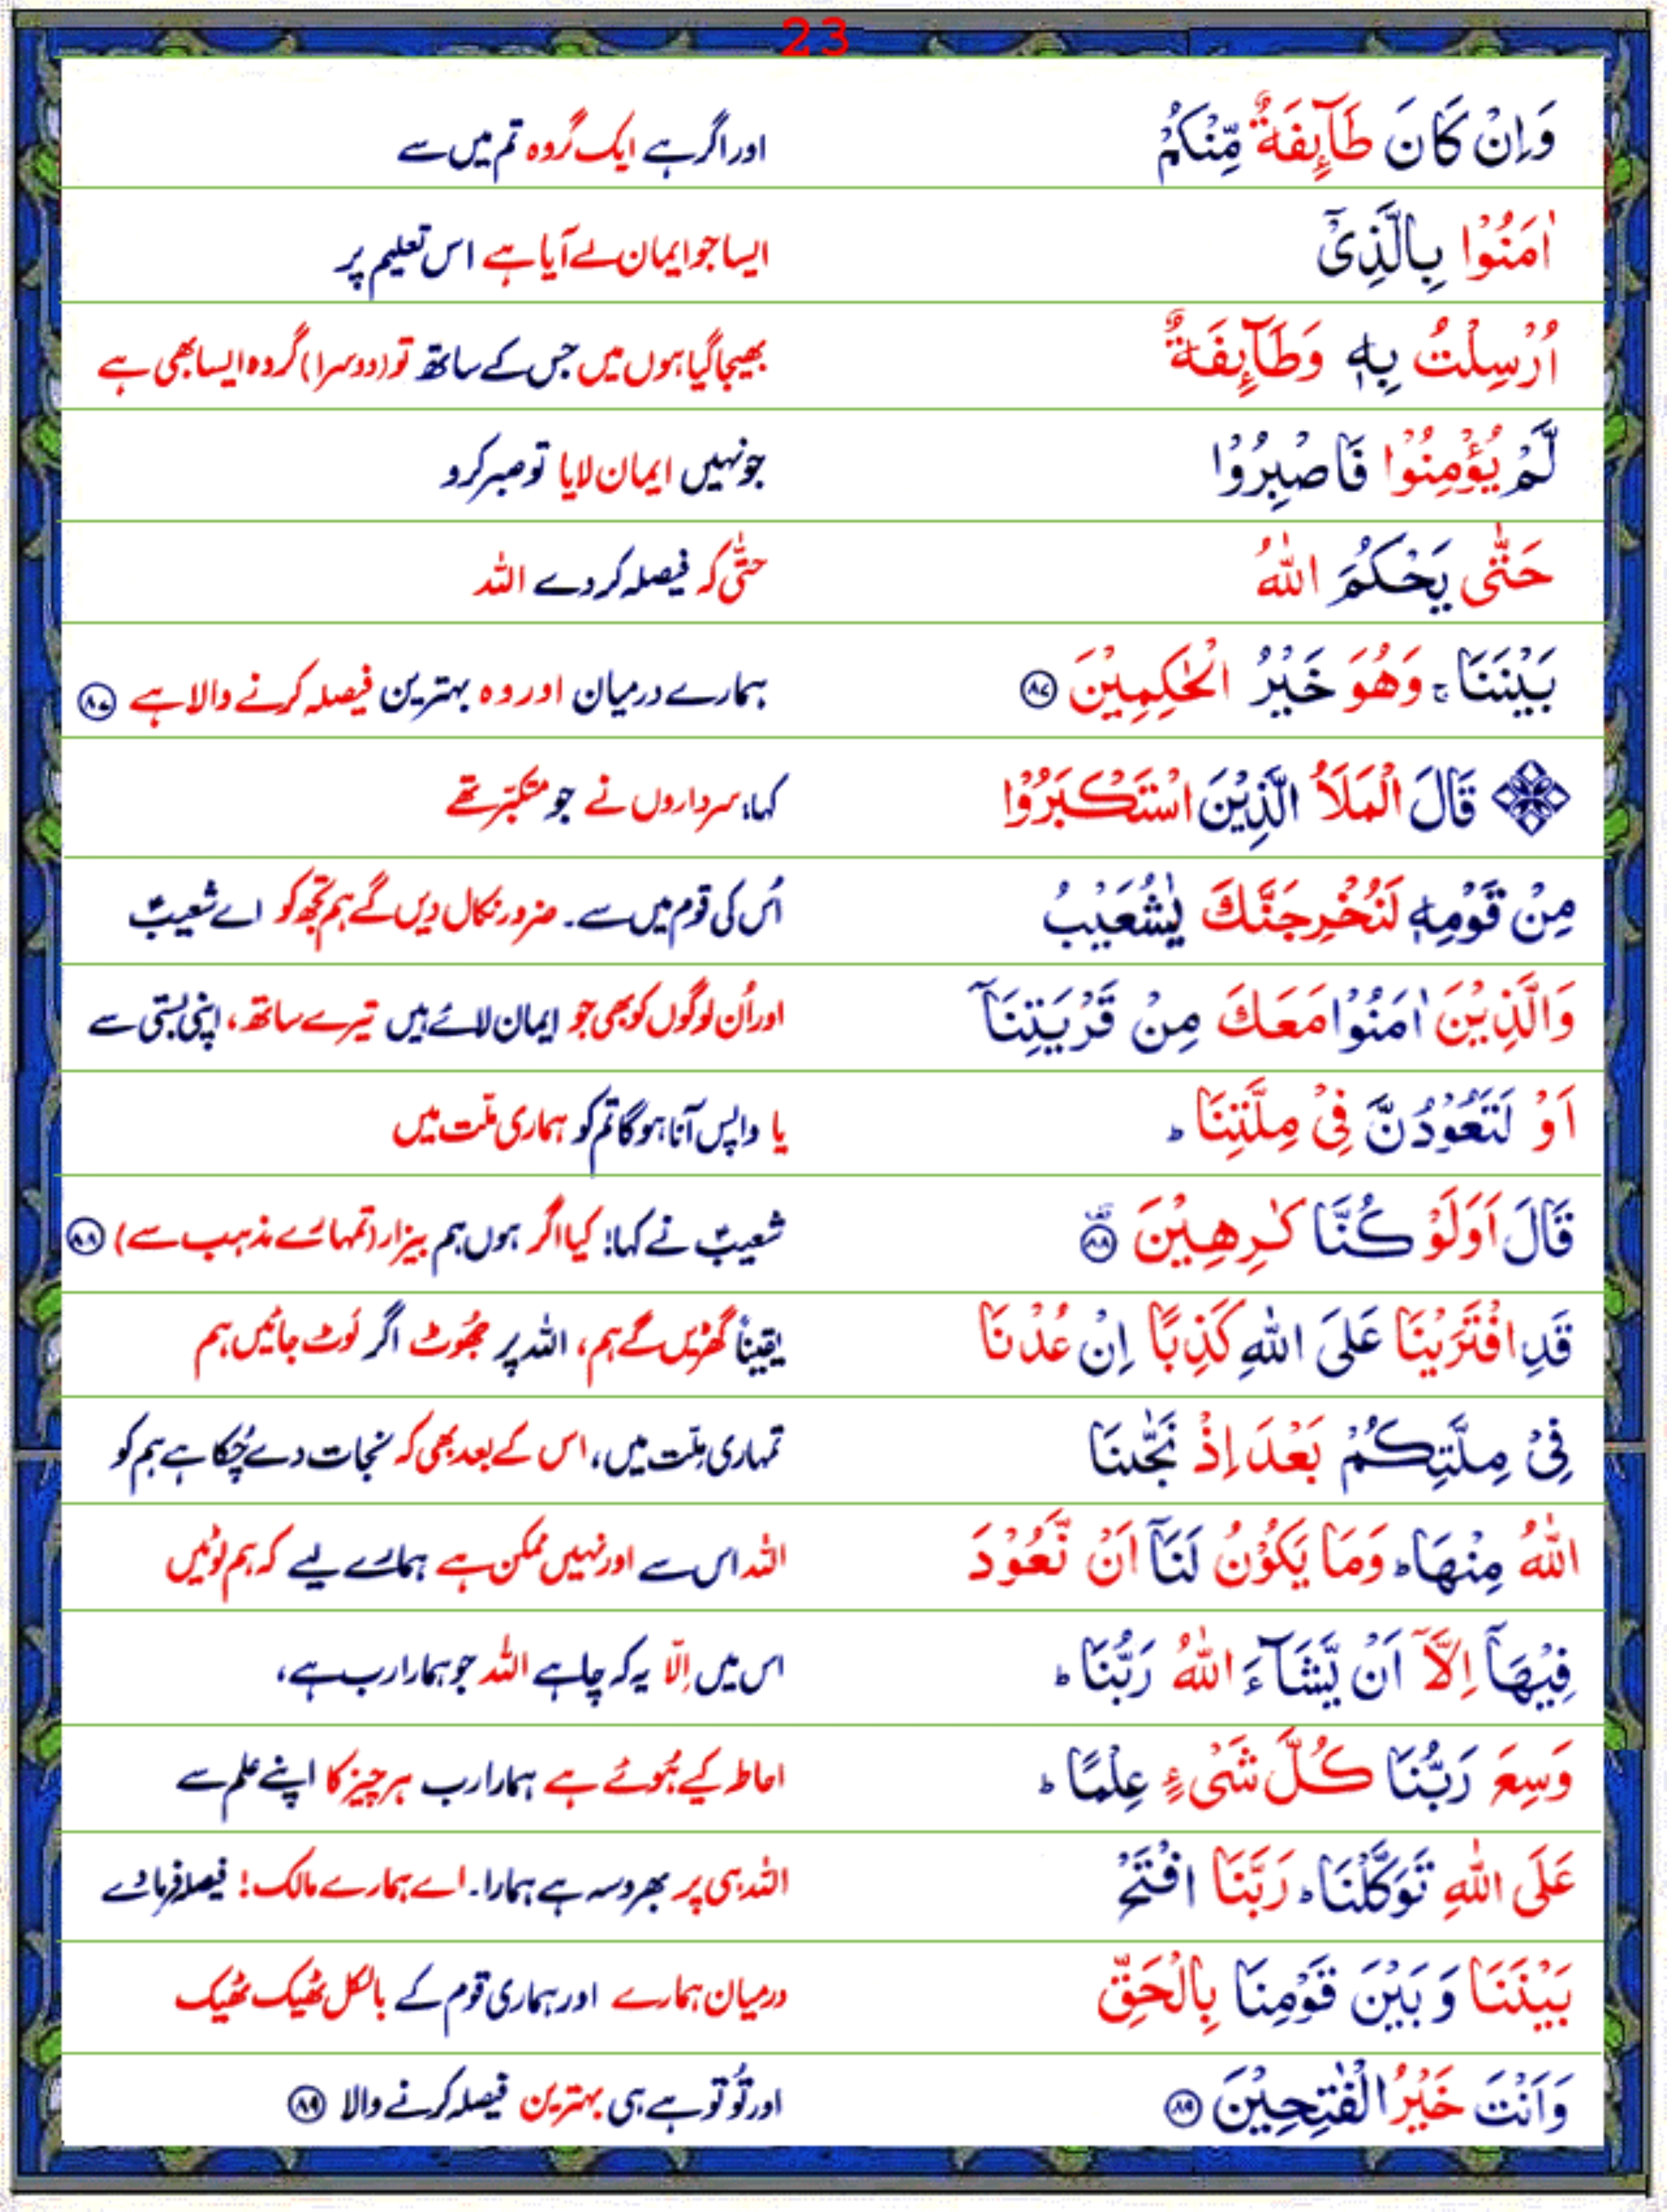 23
وَاِنْ كَانَ طَآىِٕفَةٌ مِّنْكُمْ اور اگر ہے ایک گروہ تم میں سے
اٰمَنُوْا بِالَّذِیْۤ ایسا جو ایمان لے آیا ہے اس تعلیم پر
اُرْسِلْتُ بِهٖ وَطَآىِٕفَةٌ بھیجا گیا ہوں میں جس کے ساتھ تو (دوسرا) گروہ ایسا بھی ہے
لَّمْ یُؤْمِنُوْا فَاصْبِرُوْا جو نہیں ایمان لایا تو صبر کرو
حَتّٰى یَحْكُمَ اللّٰهُ حتّٰی کہ فیصلہ کر دے اللہ
بَیْنَنَا ۚ وَهُوَ خَیْرُ الْحٰكِمِیْنَ ﴿۸۷﴾ ہمارے درمیان اور وہ بہترین فیصلہ کرنے والا ہے ﴿۸۷﴾
قَالَ الْمَلَاُ الَّذِیْنَ اسْتَكْبَرُوْا کہا، سرداروں نے جو متکبّر تھے
مِنْ قَوْمِهٖ لَنُخْرِجَنَّكَ یٰشُعَیْبُ اُس کی قوم میں سے۔ ضرور نکال دیں گے ہم تجھ کو اے شعیبؑ
وَالَّذِیْنَ اٰمَنُوْا مَعَكَ مِنْ قَرْیَتِنَاۤ اور اُن لوگوں کو بھی جو ایمان لائے ہیں تیرے ساتھ، اپنی بستی سے
اَوْ لَتَعُوْدُنَّ فِیْ مِلَّتِنَا ؕ یا واپس آنا ہو گا تم کو ہماری ملّت میں
قَالَ اَوَلَوْ كُنَّا كٰرِهِیْنَ ﴿۸۸﴾ شعیبؑ نے کہا: کیا اگر ہوں ہم بیزار (تمہارے مذہب سے) ﴿۸۸﴾
قَدِ افْتَرَیْنَا عَلَى اللّٰهِ كَذِبًا اِنْ عُدْنَا یقیناً گھڑیں گے ہم، اللہ پر جھُوٹ اگر لَوٹ جائیں ہم
فِیْ مِلَّتِكُمْ بَعْدَ اِذْ نَجّٰىنَا تمہاری ملّت میں، اس کے بعد بھی کہ نجات دے چُکا ہے ہم کو
اللّٰهُ مِنْهَا ؕ وَمَا یَكُوْنُ لَنَاۤ اَنْ نَّعُوْدَ اللہ اس سے اور نہیں ممکن ہے ہمارے لیے کہ ہم لوٹیں
فِیْهَاۤ اِلَّاۤ اَنْ یَّشَآءَ اللّٰهُ رَبُّنَا ؕ اس میں اِلّا یہ کہ چاہے اللہ جو ہمارا رب ہے،
وَسِعَ رَبُّنَا كُلَّ شَیْءٍ عِلْمًا ؕ احاطہ کیے ہُوئے ہے ہمارا رب ہر چیز کا اپنے علم سے
عَلَى اللّٰهِ تَوَكَّلْنَا ؕ رَبَّنَا افْتَحْ اللہ ہی پر بھروسہ ہے ہمارا۔ اے ہمارے مالک! فیصلہ فرما دے
بَیْنَنَا وَبَیْنَ قَوْمِنَا بِالْحَقِّ درمیان ہمارے اور ہماری قوم کے بالکل ٹھیک ٹھیک
وَاَنْتَ خَیْرُ الْفٰتِحِیْنَ ﴿۸۹﴾ اور تُو تو ہے ہی بہترین فیصلہ کرنے والا ﴿۸۹﴾